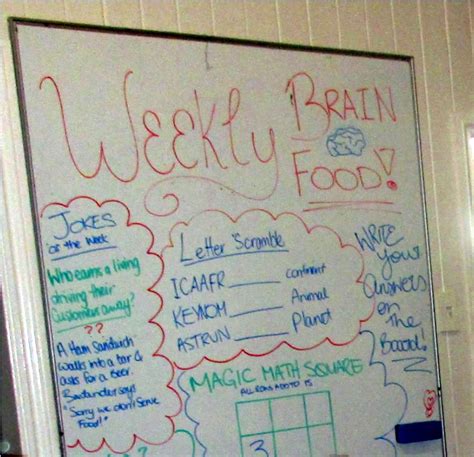 WEEKLY
BRAIN
FOOD!
JOKES
of the Week
Who earns a living
driving their
customers away?
??
A Ham Sandwich
walks into a bar &
asks for a beer.
Bartender says
"Sorry we don't Serve
Food!"
Letter Scramble
ICAAFR ______ continent
KEYNOM ______ Animal
ASTRUN ______ Planet
WRITE
Your
Answers
on
the
Board!
MAGIC MATH SQUARE
ALL ROWS ADD TO 15
3